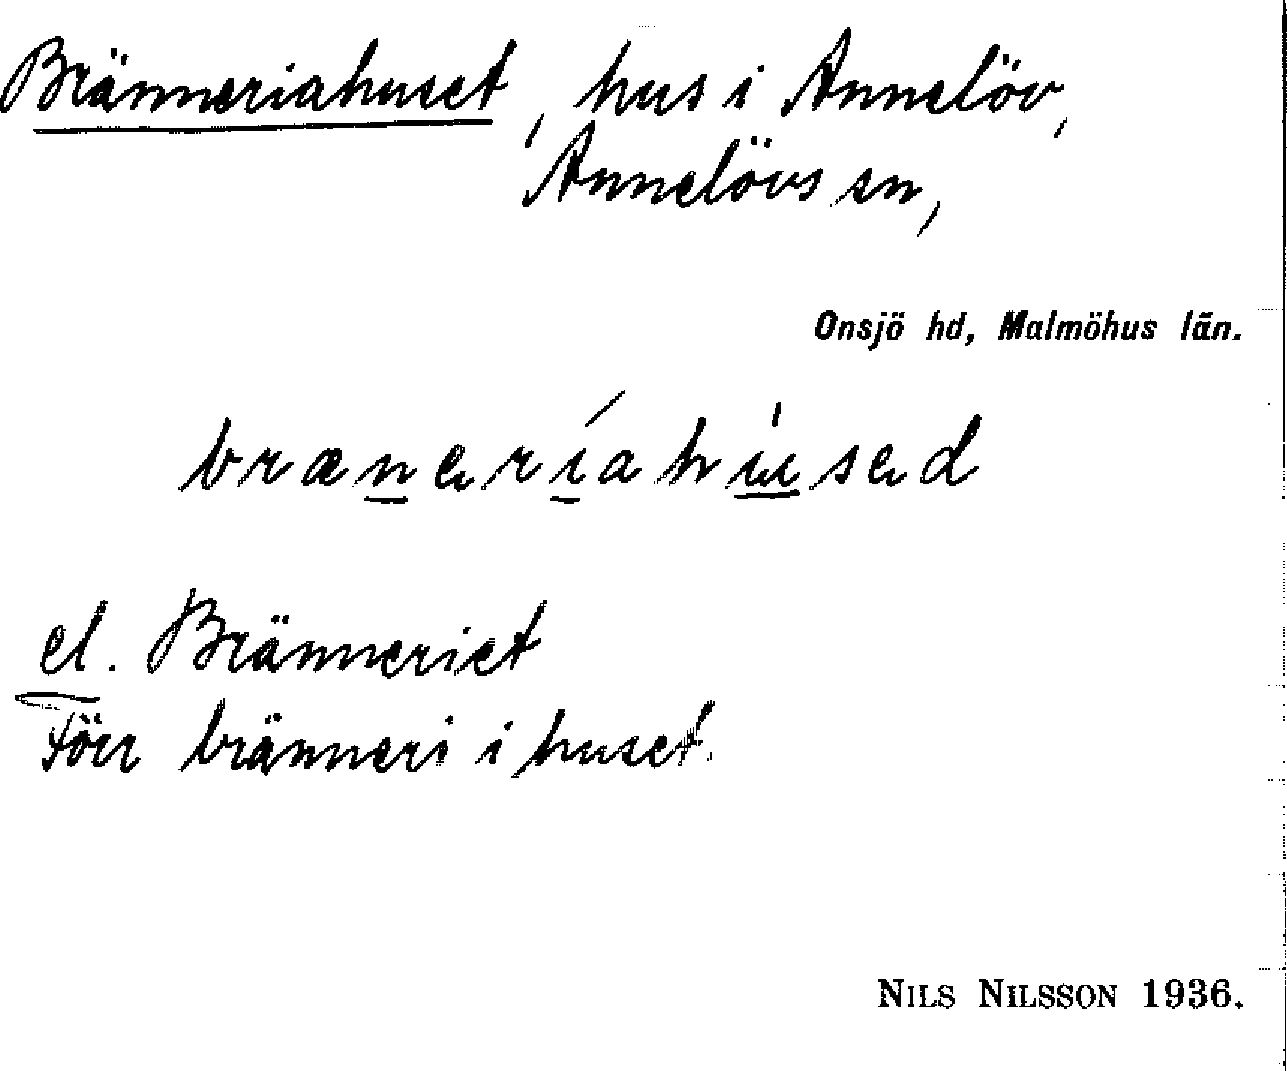 Bränneriahuset, hus i Annelöv,
Annelövs sn,
Onsjö hd, Malmöhus län.
bræneríahúsed
el. Bränneriet
Förr bränneri i huset.
NILS NILSSON 1936.